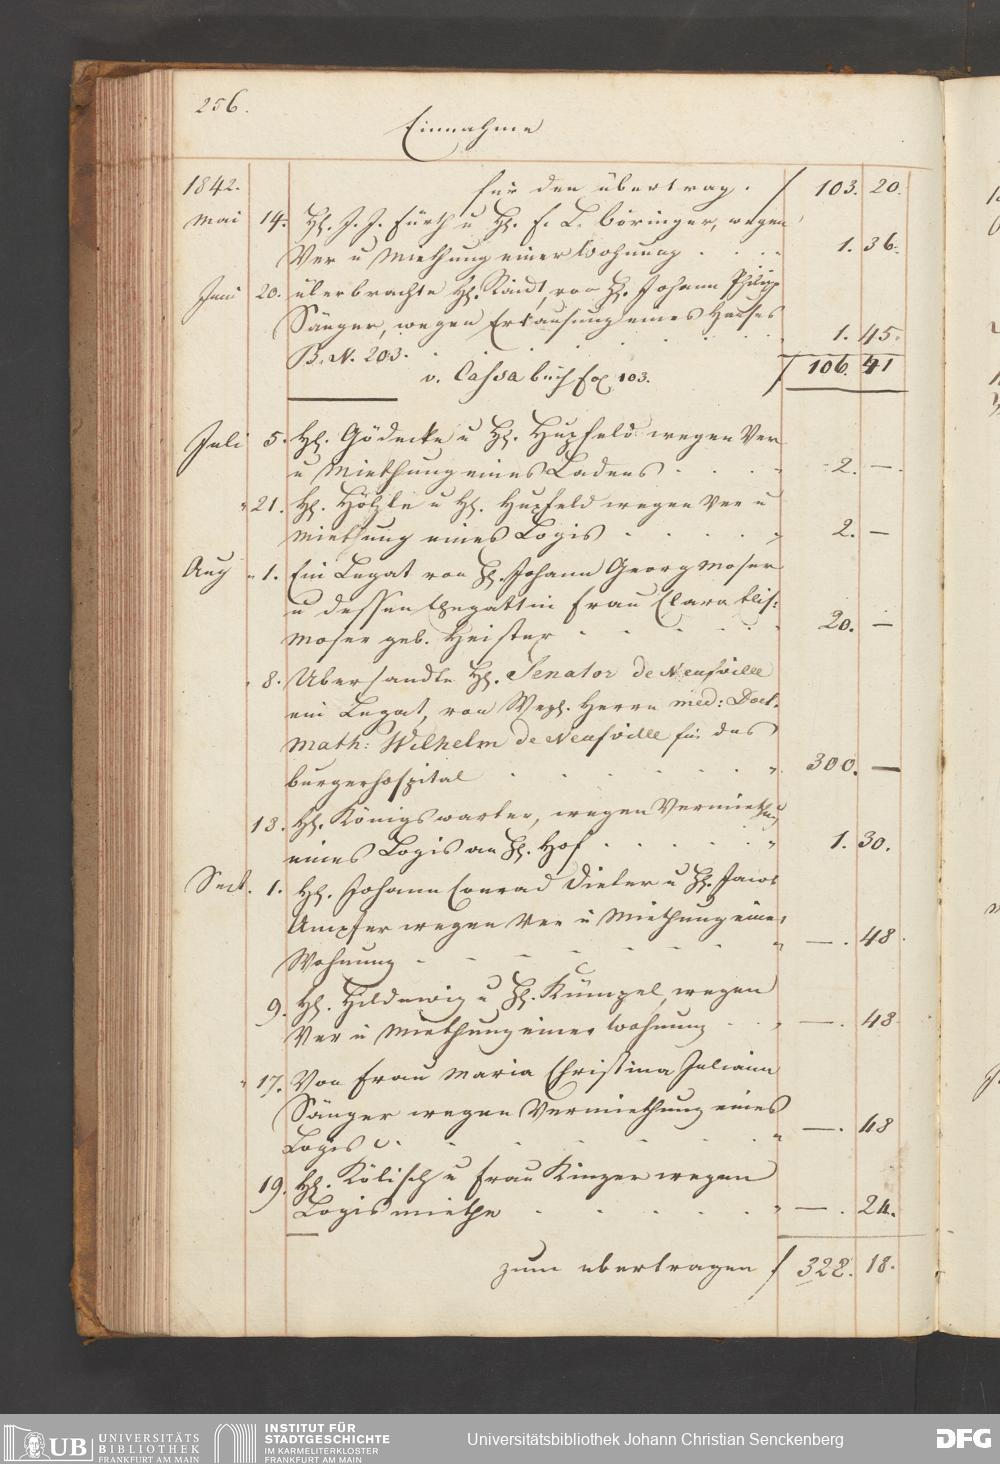 256.
Einnahme
1842. für den übertrag. f 103. 20.
Mai 14. H. J. J. Fürth u H. F. L. Böringer, wegen
Ver u Miethung einer Wohnung . . . . 1. 36.
Juni 20. überbrachte H. Rindt, von H. Johann Philipp
Sänger, wegen Erkaufung eines Hauses
B. N. 203. . . . . . 1. 45.
v. Cassa buch fol 103. f 106. 41
Juli 5. H. Gödecke u H. Hupfeld wegen Ver
u Miethung eines Ladens . . . " 2. —.
" 21. H. Hölzle u H. Hupfeld wegen Ver u
Miethung eines Logis . . . . " 2. —
Aug " 1. Ein Legat von H. Johann Georg Moser
u dessen Ehegattin Frau Clara Elis:
Moser geb. Heister . . . . " 20. —
" 8. Übersandte H. Senator de Neufville
ein Legat, von Herrn med: Doct.
Math: Wilhelm de Neufville für das
burgerhospital . . . . . " 300. —
13. H. Königswarter, wegen Vermiethung
eines Logis an H. Hof . . . . . " 1. 30.
Sept. 1. H. Johann Conrad Dieler u H. Jacob
Umpfer wegen Ver u Miethung einer
Wohnung - - - - - - " —. 48.
9. H. Hildewig u H. Kümpel, wegen
Ver u Miethung einer Wohnung . . " —. 48
" 17. Von Frau Maria Christina Juliana
Sänger wegen Vermiethung eines
Logis . . . . . " —. 48
19. H. Kölisch u Frau Kinzer wegen
Logis miethe . . . . . " —. 24.
zum übertragen f 328. 18.
UB UNIVERSITÄTS
BIBLIOTHEK
FRANKFURT AM MAIN
INSTITUT FÜR
STADTGESCHICHTE
IM KARMELITERKLOSTER
FRANKFURT AM MAIN
Universitätsbibliothek Johann Christian Senckenberg
DFG